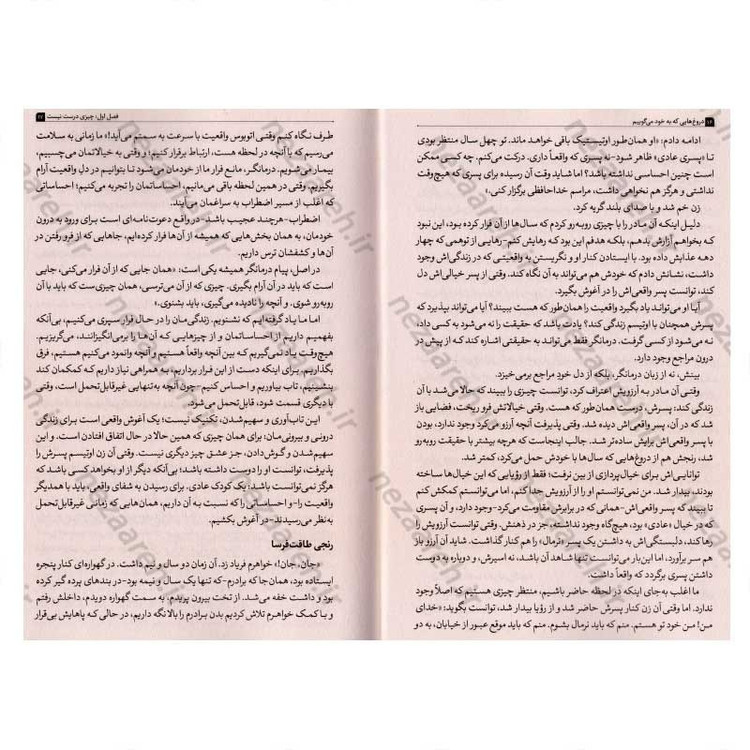 دروغ‌هایی که به خود می‌گوییم
ادامه دادم: «او همان‌طور اوتیستیک باقی خواهد ماند. تو چهل سال منتظر بودی
تا «پسری عادی» ظاهر شود–نه پسری که واقعاً داری. درکت می‌کنم. چه کسی ممکن
است چنین احساسی نداشته باشد؟ اما شاید وقت آن رسیده برای پسری که هیچ‌وقت
نداشتی و هرگز هم نخواهی داشت، مراسم خداحافظی برگزار کنی.»
زن خم شد و با صدای بلند گریه کرد.
دلیل اینکه آن مادر را با چیزی روبه‌رو کردم که سال‌ها از آن فرار کرده بود، این نبود
که بخواهم آزارش بدهم، بلکه هدفم این بود که رهایش کنم–رهایی از توهمی که چهار
دهه عذابش داده بود. با ایستادن کنار او و نگریستن به واقعیتی که در زندگی‌اش وجود
داشت، نشانش دادم که خودش هم می‌تواند به آن نگاه کند. وقتی از پسر خیالی‌اش دل
کند، توانست پسر واقعی‌اش را در آغوش بگیرد.
آیا او می‌تواند یاد بگیرد واقعیت را همان‌طور که هست ببیند؟ آیا می‌تواند بپذیرد که
پسرش همچنان با اوتیسم زندگی کند؟ یادت باشد که حقیقت را نه می‌شود به کسی داد،
نه می‌شود از کسی گرفت. درمانگر فقط می‌تواند به حقیقتی اشاره کند که از پیش در
درون مراجع وجود دارد.
بینش، نه از زبان درمانگر، بلکه از دل خود مراجع برمی‌خیزد.
وقتی آن مادر به آرزویش اعتراف کرد، توانست چیزی را ببیند که حالا می‌شد با آن
زندگی کند: پسرش، درست همان‌طور که هست. وقتی خیالاتش فرو ریخت، فضایی باز
شد که در آن، پسر واقعی‌اش دیده شد. وقتی پذیرفت آنچه آرزو می‌کرد وجود ندارد، بودن
با پسر واقعی‌اش برایش ساده‌تر شد. جالب اینجاست که هرچه بیشتر با حقیقت روبه‌رو
شد، رنجش هم از دروغ‌هایی که سال‌ها با خودش حمل می‌کرد، کمتر شد.
توانایی‌اش برای خیال‌پردازی از بین نرفت؛ فقط از رؤیایی که این خیال‌ها ساخته
بودند، بیدار شد. من نمی‌توانستم او را از آرزویش جدا کنم، اما می‌توانستم کمکش کنم
تا ببیند که پسر واقعی‌اش–همانی که در برابرش مقاومت می‌کرد–وجود دارد، و آن پسری
که در خیال «عادی» بود، هیچ‌گاه وجود نداشته، جز در ذهنش. وقتی توانست آرزویش را
رها کند، دلبستگی‌اش به داشتن یک پسر «نرمال» را هم کنار گذاشت. شاید آن آرزو باز
هم سر برآورد، اما این‌بار می‌توانست تنها شاهد آن باشد، نه اسیرش، و دوباره به دوست
داشتن پسری برگردد که واقعاً داشت.
ما اغلب به‌جای اینکه در لحظه حاضر باشیم، منتظر چیزی هستیم که اصلاً وجود
ندارد. اما وقتی آن زن کنار پسرش حاضر شد و از رؤیا بیدار شد، توانست بگوید: «خدای
من! من خود تو هستم. منم که باید نرمال بشوم. منم که باید موقع عبور از خیابان، به دو
فصل اول: چیزی درست نیست
طرف نگاه کنم وقتی اتوبوس واقعیت با سرعت به سمتم می‌آید!» ما زمانی به سلامت
می‌رسیم که با آنچه در لحظه هست، ارتباط برقرار کنیم؛ و وقتی به خیالاتمان می‌چسبیم،
بیمار می‌شویم. درمانگر، مانع فرار ما از خودمان می‌شود تا بتوانیم در دل واقعیت آرام
بگیریم. وقتی در همین لحظه باقی می‌مانیم، احساساتمان را تجربه می‌کنیم؛ احساساتی
که اغلب از مسیر اضطراب به سراغمان می‌آیند.
اضطراب–هرچند عجیب باشد–در واقع دعوت‌نامه‌ای است برای ورود به درون
خودمان، به همان بخش‌هایی که همیشه از آن‌ها فرار کرده‌ایم، جاهایی که از فرو رفتن در
آن‌ها و کشفشان ترس داریم.
در اصل، پیام درمانگر همیشه یکی است: «همان جایی که از آن فرار می‌کنی، جایی
است که باید در آن آرام بگیری. چیزی که از آن می‌ترسی، همان چیزی‌ست که باید با آن
روبه‌رو شوی. و آنچه را نادیده می‌گیری، باید بشنوی.»
اما ما یاد گرفته‌ایم که نشنویم. زندگی‌مان را در حال فرار سپری می‌کنیم، بی‌آنکه
بفهمیم داریم از احساساتمان و از چیزهایی که آن‌ها را برمی‌انگیزانند، می‌گریزیم.
هیچ‌وقت یاد نمی‌گیریم که بین آنچه واقعاً هستیم و آنچه وانمود می‌کنیم هستیم، فرق
بگذاریم. برای اینکه دست از این فرار برداریم، به همراهی نیاز داریم که کمکمان کند
بنشینیم، تاب بیاوریم و احساس کنیم–چون آنچه به‌تنهایی غیرقابل‌تحمل است، وقتی
با دیگری قسمت شود، قابل تحمل می‌شود.
این تاب‌آوری و سهیم‌شدن، تکنیک نیست؛ یک آغوش واقعی است برای زندگی
درونی و بیرونی‌مان، برای همان چیزی که همین حالا در حال اتفاق افتادن است. و این
سهیم‌شدن و گوش‌دادن، جز عشق چیز دیگری نیست. وقتی آن زن اوتیسم پسرش را
پذیرفت، توانست او را دوست داشته باشد؛ بی‌آنکه دیگر از او بخواهد کسی باشد که
هرگز نمی‌توانست باشد: یک کودک عادی. برای رسیدن به شفای واقعی، باید با همدیگر
واقعیت را–و احساساتی را که نسبت به آن داریم، همان‌هایی که زمانی غیرقابل‌تحمل
به‌نظر می‌رسیدند–در آغوش بکشیم.
رنجی طاقت‌فرسا
«جان، جان!» خواهرم فریاد زد. آن زمان دو سال و نیم داشت. در گهواره‌ای کنار پنجره
ایستاده بود، همان‌جا که برادرم–که تنها یک سال و نیمه بود–در بندهای پرده گیر کرده
بود و داشت خفه می‌شد. از تخت بیرون پریدم، به سمت گهواره دویدم، داخلش رفتم
و با کمک خواهرم تلاش کردیم بدن برادرم را بالا نگه داریم، در حالی‌که پاهایش بی‌قرار
nezaareh.ir